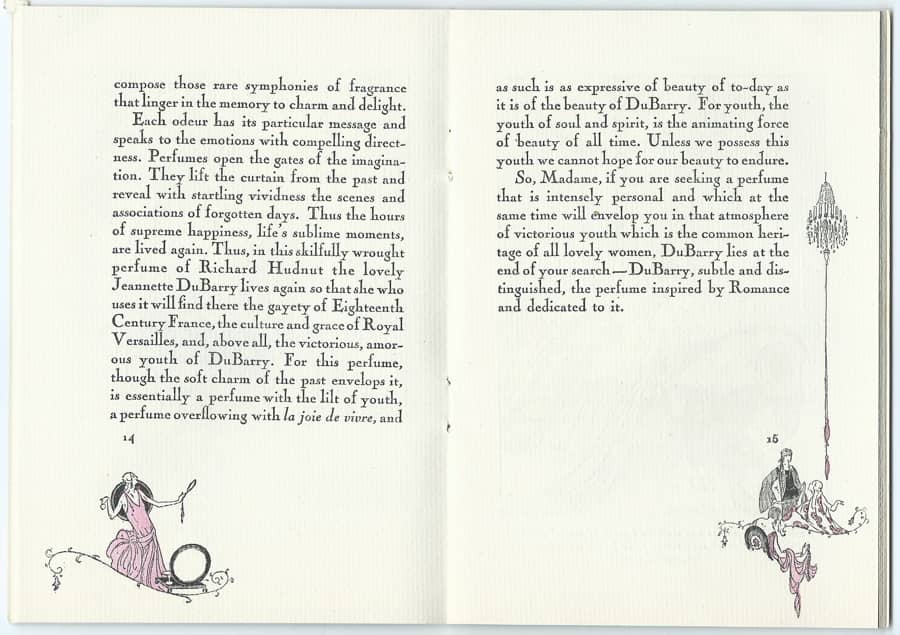 compose those rare symphonies of fragrance
that linger in the memory to charm and delight.
Each odeur has its particular message and
speaks to the emotions with compelling direct-
ness. Perfumes open the gates of the imagina-
tion. They lift the curtain from the past and
reveal with startling vividness the scenes and
associations of forgotten days. Thus the hours
of supreme happiness, life's sublime moments,
are lived again. Thus, in this skilfully wrought
perfume of Richard Hudnut the lovely
Jeannette DuBarry lives again so that she who
uses it will find there the gayety of Eighteenth
Century France, the culture and grace of Royal
Versailles, and, above all, the victorious, amor-
ous youth of DuBarry. For this perfume,
though the soft charm of the past envelops it,
is essentially a perfume with the lilt of youth,
a perfume overflowing with la joie de vivre, and
14
as such is as expressive of beauty of to-day as
it is of the beauty of DuBarry. For youth, the
youth of soul and spirit, is the animating force
of beauty of all time. Unless we possess this
youth we cannot hope for our beauty to endure.
So, Madame, if you are seeking a perfume
that is intensely personal and which at the
same time will envelop you in that atmosphere
of victorious youth which is the common heri-
tage of all lovely women, DuBarry lies at the
end of your search—DuBarry, subtle and dis-
tinguished, the perfume inspired by Romance
and dedicated to it.
15